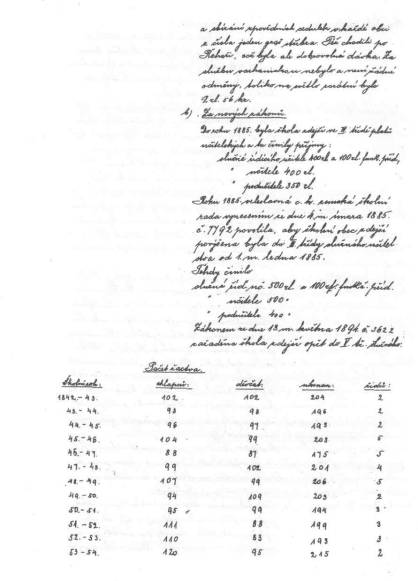 a sbírání zpovědních cedulek v každé obci
z čísla jeden groš stříbra. Též chodili po
koledě, což byla ale dobrovolná dávka. Za
službu varhanickou nebylo a není žádné
odměny, toliko na světlo roční bylo
2 zl. 56 kr.
b) Za nových zákonů.
Do roku 1885. byla škola zdejší ve III. třídě platů
učitelských a tu činily příjmy:
služné řídícího učitele 400 zl a 100 zl. funk. příd.
" učitele 400 zl.
" podučitele 350 zl.
Roku 1885. veleslavná c. k. zemská školní
rada vynesením ze dne 4. m. února 1885.
č. 7792 povolila, aby školní obec zdejší
povýšena byla do II. třídy služného učitel
stva od 1. m. ledna 1885.
Tehdy činilo
služné říd. uč. 500 zl a 100 zl funkč. příd.
" učitele 500 "
" podučitele 400 "
Zákonem ze dne 13. m. května 1894 č. 362 z
zařaděna škola zdejší opět do tř. služného.
Počet žactva.
Školní rok: chlapců: děvčat: úhrnem: židů:
1842.-43. 102 102 204 2
43.-44. 98 98 196 2
44.-45. 96 97 193 2
45.-46. 104 99 203 5
46.-47. 88 87 175 5
47.-48. 99 102 201 4
48.-49. 107 99 206 5
49.-50. 94 109 203 2
50.-51. 95 99 194 3
51.-52. 111 88 199 3
52.-53. 110 83 193 3
53-54. 120 95 215 2